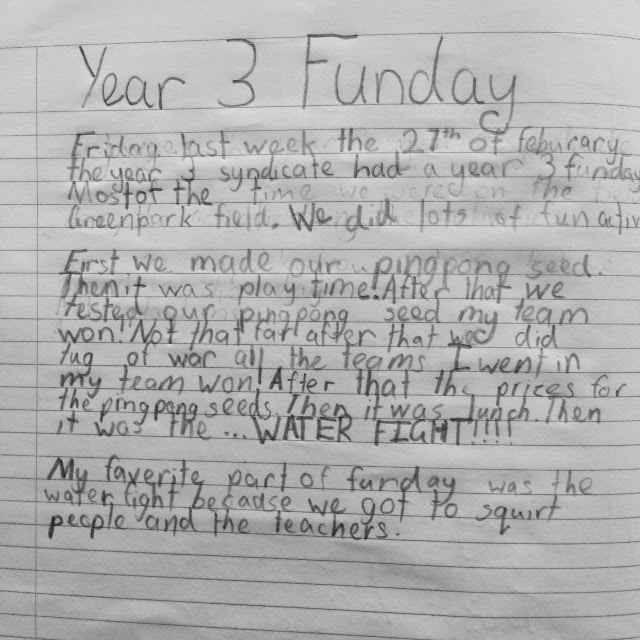 Year 3 Funday
Friday last week the 27th of Feburary
the year 3 syndicate had a year 3 funday
Most of the time we were on the
Greenpark field. We did lots of fun
First we made our pingpong seed.
Then it was play time! After that we
tested our pingpong seed my team
won! Not that far after that we did
tug of war all the teams I went in
my team won! After that the prices for
the pingpong seeds. Then it was lunch. Then
it was the ... WATER FIGHT!!!!
My favorite part of funday was the
water fight because we got to squirt
people and the teachers.